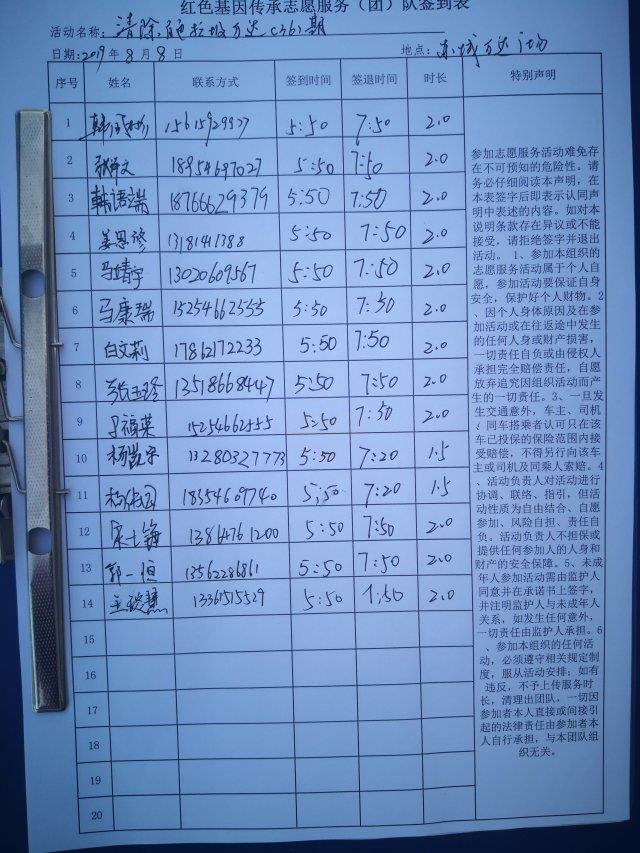 红色基因传承志愿服务（团）队签到表
活动名称：清除白色垃圾万达(36)期
日期：2019年8月8日 地点：东城万达广场
序号 姓名 联系方式 签到时间 签退时间 时长 特别声明
1 15615929927 5:50 7:50 2.0
2 18954697027 5:50 7:50 2.0
3 韩语端 18766629379 5:50 7:50 2.0
4 姜恩修 13181411388 5:50 7:50 2.0
5 马靖宇 13020609567 5:50 7:50 2.0
6 马康瑞 15254662555 5:50 7:50 2.0
7 白文莉 17862172233 5:50 7:50 2.0
8 张玉珍 13518668447 5:50 7:50 2.0
9 福荣 15254662555 5:50 7:50 2.0
10 杨 宇 13280327773 5:50 7:20 1.5
11 18354609740 5:50 7:20 1.5
12 宋士海 13864761200 5:50 7:50 2.0
13 郭一恒 13562286861 5:50 7:50 2.0
14 13361515529 5:50 7:50 2.0
15
16
17
18
19
20
参加志愿服务活动难免存
在不可预知的危险性。请
务必仔细阅读本声明，在
本表签字后即表示认同声
明中表述的内容。如对本
说明条款存在异议或不能
接受，请拒绝签字并退出
活动。 1、参加本组织的
志愿服务活动属于个人自
愿，参加活动要保证自身
安全，保护好个人财物。2
、因个人身体原因及在参
加活动或在往返途中发生
的任何人身或财产损害，
一切责任自负或由侵权人
承担完全赔偿责任，自愿
放弃追究因组织活动而产
生的一切责任。3、一旦发
生交通意外，车主、司机
同车搭乘者认可只在该
车已投保的保险范围内接
受赔偿，不得另行向该车
主或司机及同乘人索赔。4
、活动负责人对活动进行
协调、联络、指引，但活
动性质为自由结合、自愿
参加、风险自担、责任自
负。活动负责人不担保或
提供任何参加人的人身和
财产的安全保障。5、未成
年人参加活动需由监护人
同意并在承诺书上签字，
并注明监护人与未成年人
关系，如发生任何意外，
一切责任由监护人承担。6
、参加本组织的任何活
动，必须遵守相关规定制度，
服从活动安排；如有
违反，不予上传服务时
长，清理出团队，一切因
参加者本人直接或间接引
起的法律责任由参加者本
人自行承担，与本团队组
织无关。